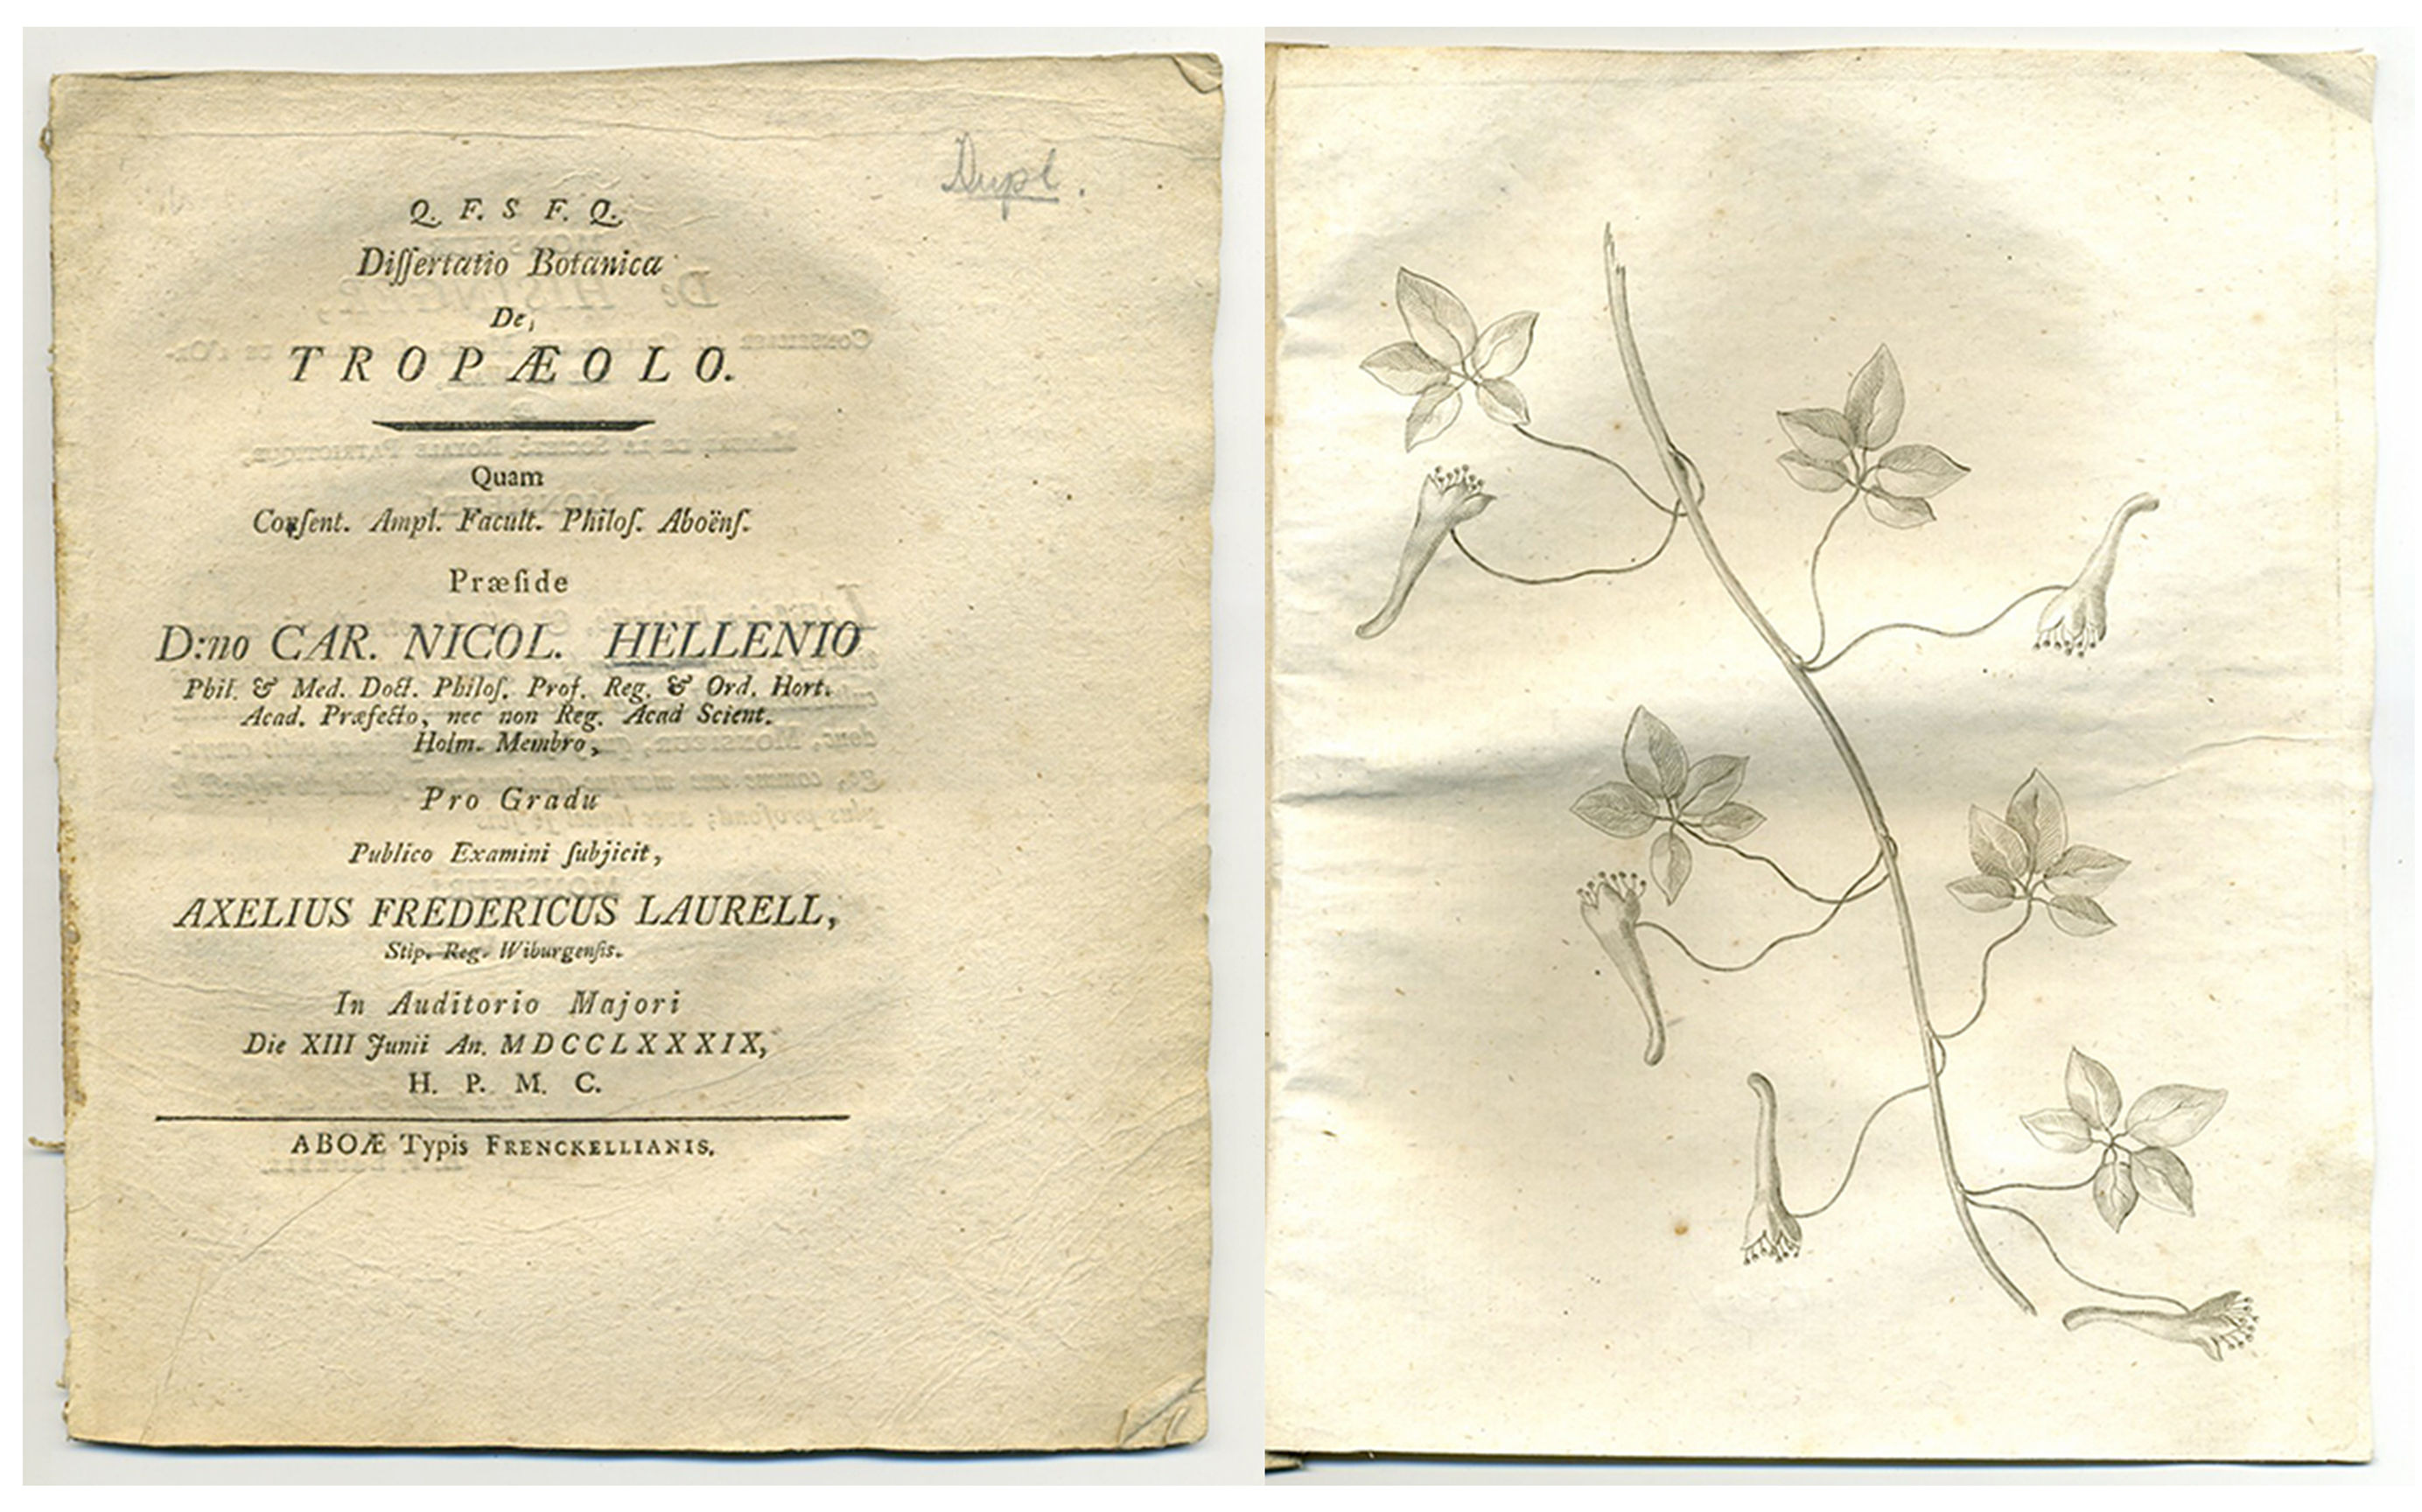 Dupl.
Q. F. S F. Q.
Diſſertatio Botanica
De,
TROPÆOLO.
Quam
Conſent. Ampl. Facult. Philoſ. Aboënſ.
Præſide
D:no CAR. NICOL. HELLENIO
Phil. & Med. Doct. Philoſ. Prof. Reg. & Ord. Hort.
Acad. Præfecto, nec non Reg. Acad Scient.
Holm. Membro,
Pro Gradu
Publico Examini ſubjicit,
AXELIUS FREDERICUS LAURELL,
Stip. Reg. Wiburgenſis.
In Auditorio Majori
Die XIII Junii An. MDCCLXXXIX,
H. P. M. C.
ABOÆ Typis FRENCKELLIANIS.